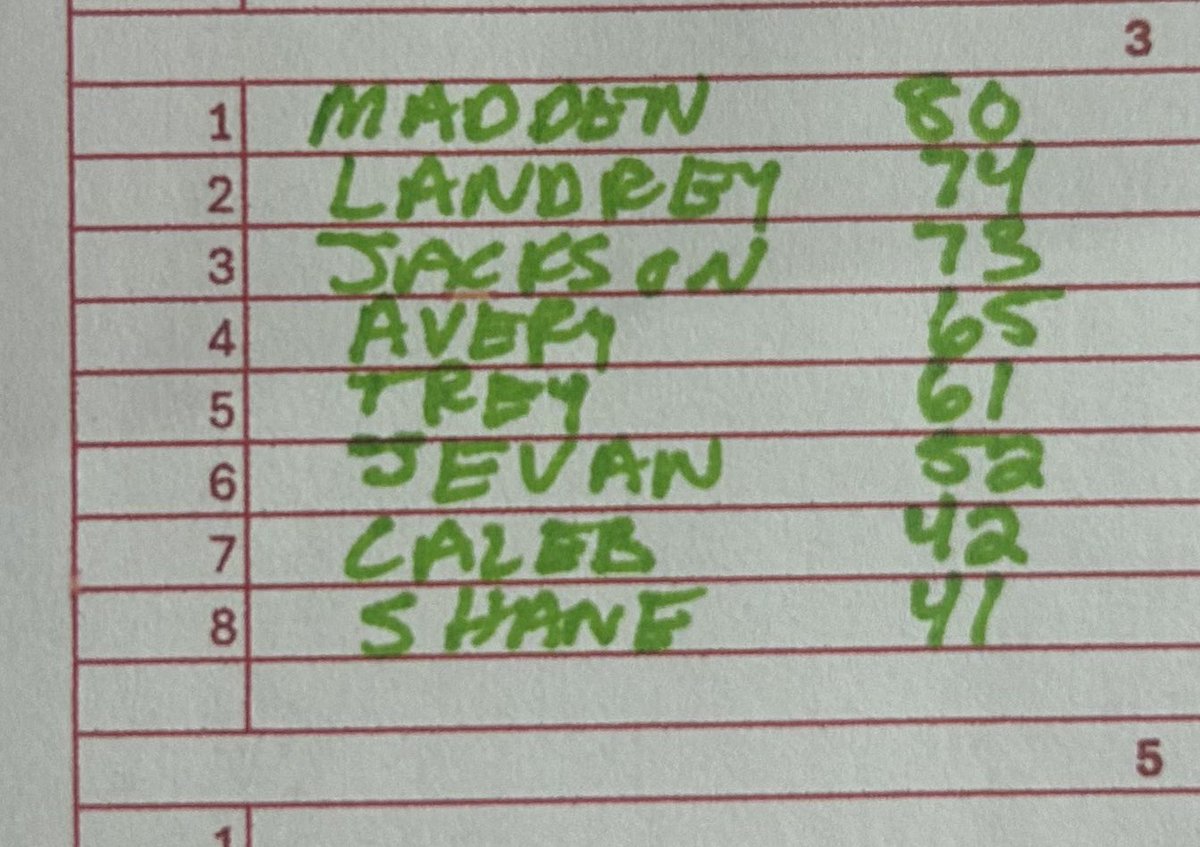 3
1 MADDEN 80
2 LANDREY 74
3 JACKSON 73
4 AVERY 65
5 TREY 61
6 JEVAN 52
7 CALEB 42
8 SHANE 41
5
1